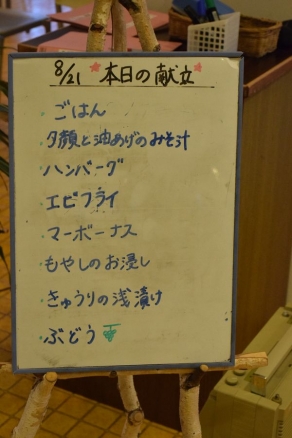 8/21 ★本日の献立★
・ごはん
・夕顔と油あげのみそ汁
・ハンバーグ
・エビフライ
・マーボーナス
・もやしのお浸し
・きゅうりの浅漬け
・ぶどう